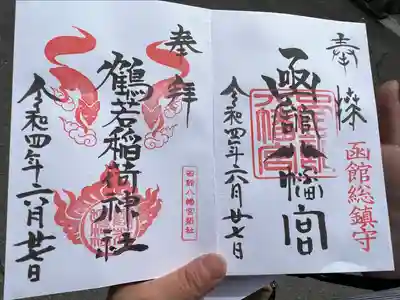 奉拝
函館総鎮守
函館八幡宮
令和四年六月廿七日
奉拝
鶴若稲荷神社
函館八幡宮末社
令和四年六月廿七日